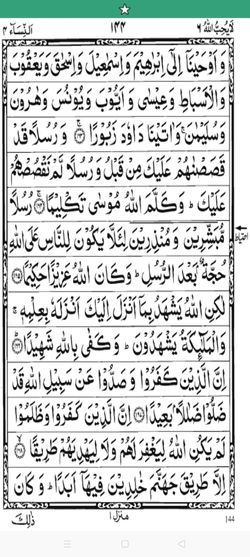 لَا يُحِبُّ اللّٰهُ ٦ ١٤٤ اَلنِّسَآء ٤
وَاَوْحَيْنَاۤ اِلٰۤى اِبْرٰهِيْمَ وَاِسْمٰعِيْلَ وَاِسْحٰقَ وَيَعْقُوْبَ
وَالْاَسْبَاطِ وَعِيْسٰى وَاَيُّوْبَ وَيُوْنُسَ وَهٰرُوْنَ
وَسُلَيْمٰنَ ۚ وَاٰتَيْنَا دَاوٗدَ زَبُوْرًا ﴿١٦٣﴾ وَرُسُلًا قَدْ
قَصَصْنٰهُمْ عَلَيْكَ مِنْ قَبْلُ وَرُسُلًا لَّمْ نَقْصُصْهُمْ
عَلَيْكَ ؕ وَكَلَّمَ اللّٰهُ مُوْسٰى تَكْلِيْمًا ﴿١٦٤﴾ رُسُلًا
مُّبَشِّرِيْنَ وَمُنْذِرِيْنَ لِئَلَّا يَكُوْنَ لِلنَّاسِ عَلَى اللّٰهِ
حُجَّةٌۢ بَعْدَ الرُّسُلِ ؕ وَكَانَ اللّٰهُ عَزِيْزًا حَكِيْمًا ﴿١٦٥﴾
لٰكِنِ اللّٰهُ يَشْهَدُ بِمَاۤ اَنْزَلَ اِلَيْكَ اَنْزَلَهٗ بِعِلْمِهٖ ۚ
وَالْمَلٰٓئِكَةُ يَشْهَدُوْنَ ؕ وَكَفٰى بِاللّٰهِ شَهِيْدًا ﴿١٦٦﴾
اِنَّ الَّذِيْنَ كَفَرُوْا وَصَدُّوْا عَنْ سَبِيْلِ اللّٰهِ قَدْ
ضَلُّوْا ضَلٰلًاۢ بَعِيْدًا ﴿١٦٧﴾ اِنَّ الَّذِيْنَ كَفَرُوْا وَظَلَمُوْا
لَمْ يَكُنِ اللّٰهُ لِيَغْفِرَ لَهُمْ وَلَا لِيَهْدِيَهُمْ طَرِيْقًا ﴿١٦٨﴾
اِلَّا طَرِيْقَ جَهَنَّمَ خٰلِدِيْنَ فِيْهَاۤ اَبَدًا ؕ وَكَانَ
منزل ١ ذٰلِكَ
144